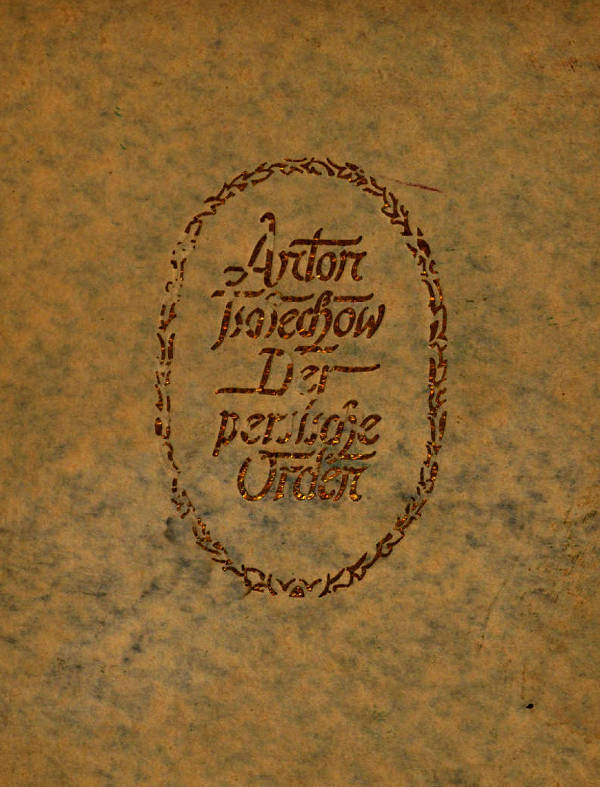 Anton
Tschechow
Der
persische
Orden